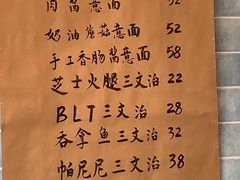 肉酱意面 32
奶油蘑菇意面 52
手工香肠酱意面 58
芝士火腿三文治 22
BLT三文治 28
吞拿鱼三文治 32
帕尼尼三文治 38